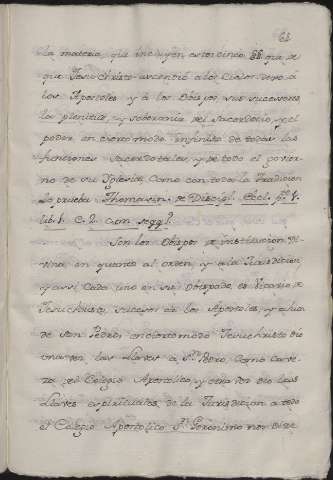 61
la materia, que incluyen estos cinco §§. que de
que Jesu Christo ascendió a los Cielos dexo á
los Apostoles y á los Obispos sus succesores
la plenitud y soberania del Sacerdocio, y el
poder en cierto modo infinito de todas las
funciones Sacerdotales, y de todo el govier
no de su Yglesia, como con toda la Tradicion
lo prueba Thomasini de Discipl. Eccl. p. 1.
lib. 1. C. 2. cum seqq.
Son los Obispos de institucion di-
vina en quanto al orden, y a la Jurisdicion
y assi cada uno en su Obispado, es Vicario de
Jesuchristo, sucesor de los Apostoles, y aun
de San Pedro: en cierto modo Jesuchristo dio
las llaves a Sn. Pedro, como Cave-
za del Colegio Apostolico, y otra vez dio las
llaves espirituales, de la Jurisdicion a todo
el Colegio Apostolico Sn. Geronimo nos dize